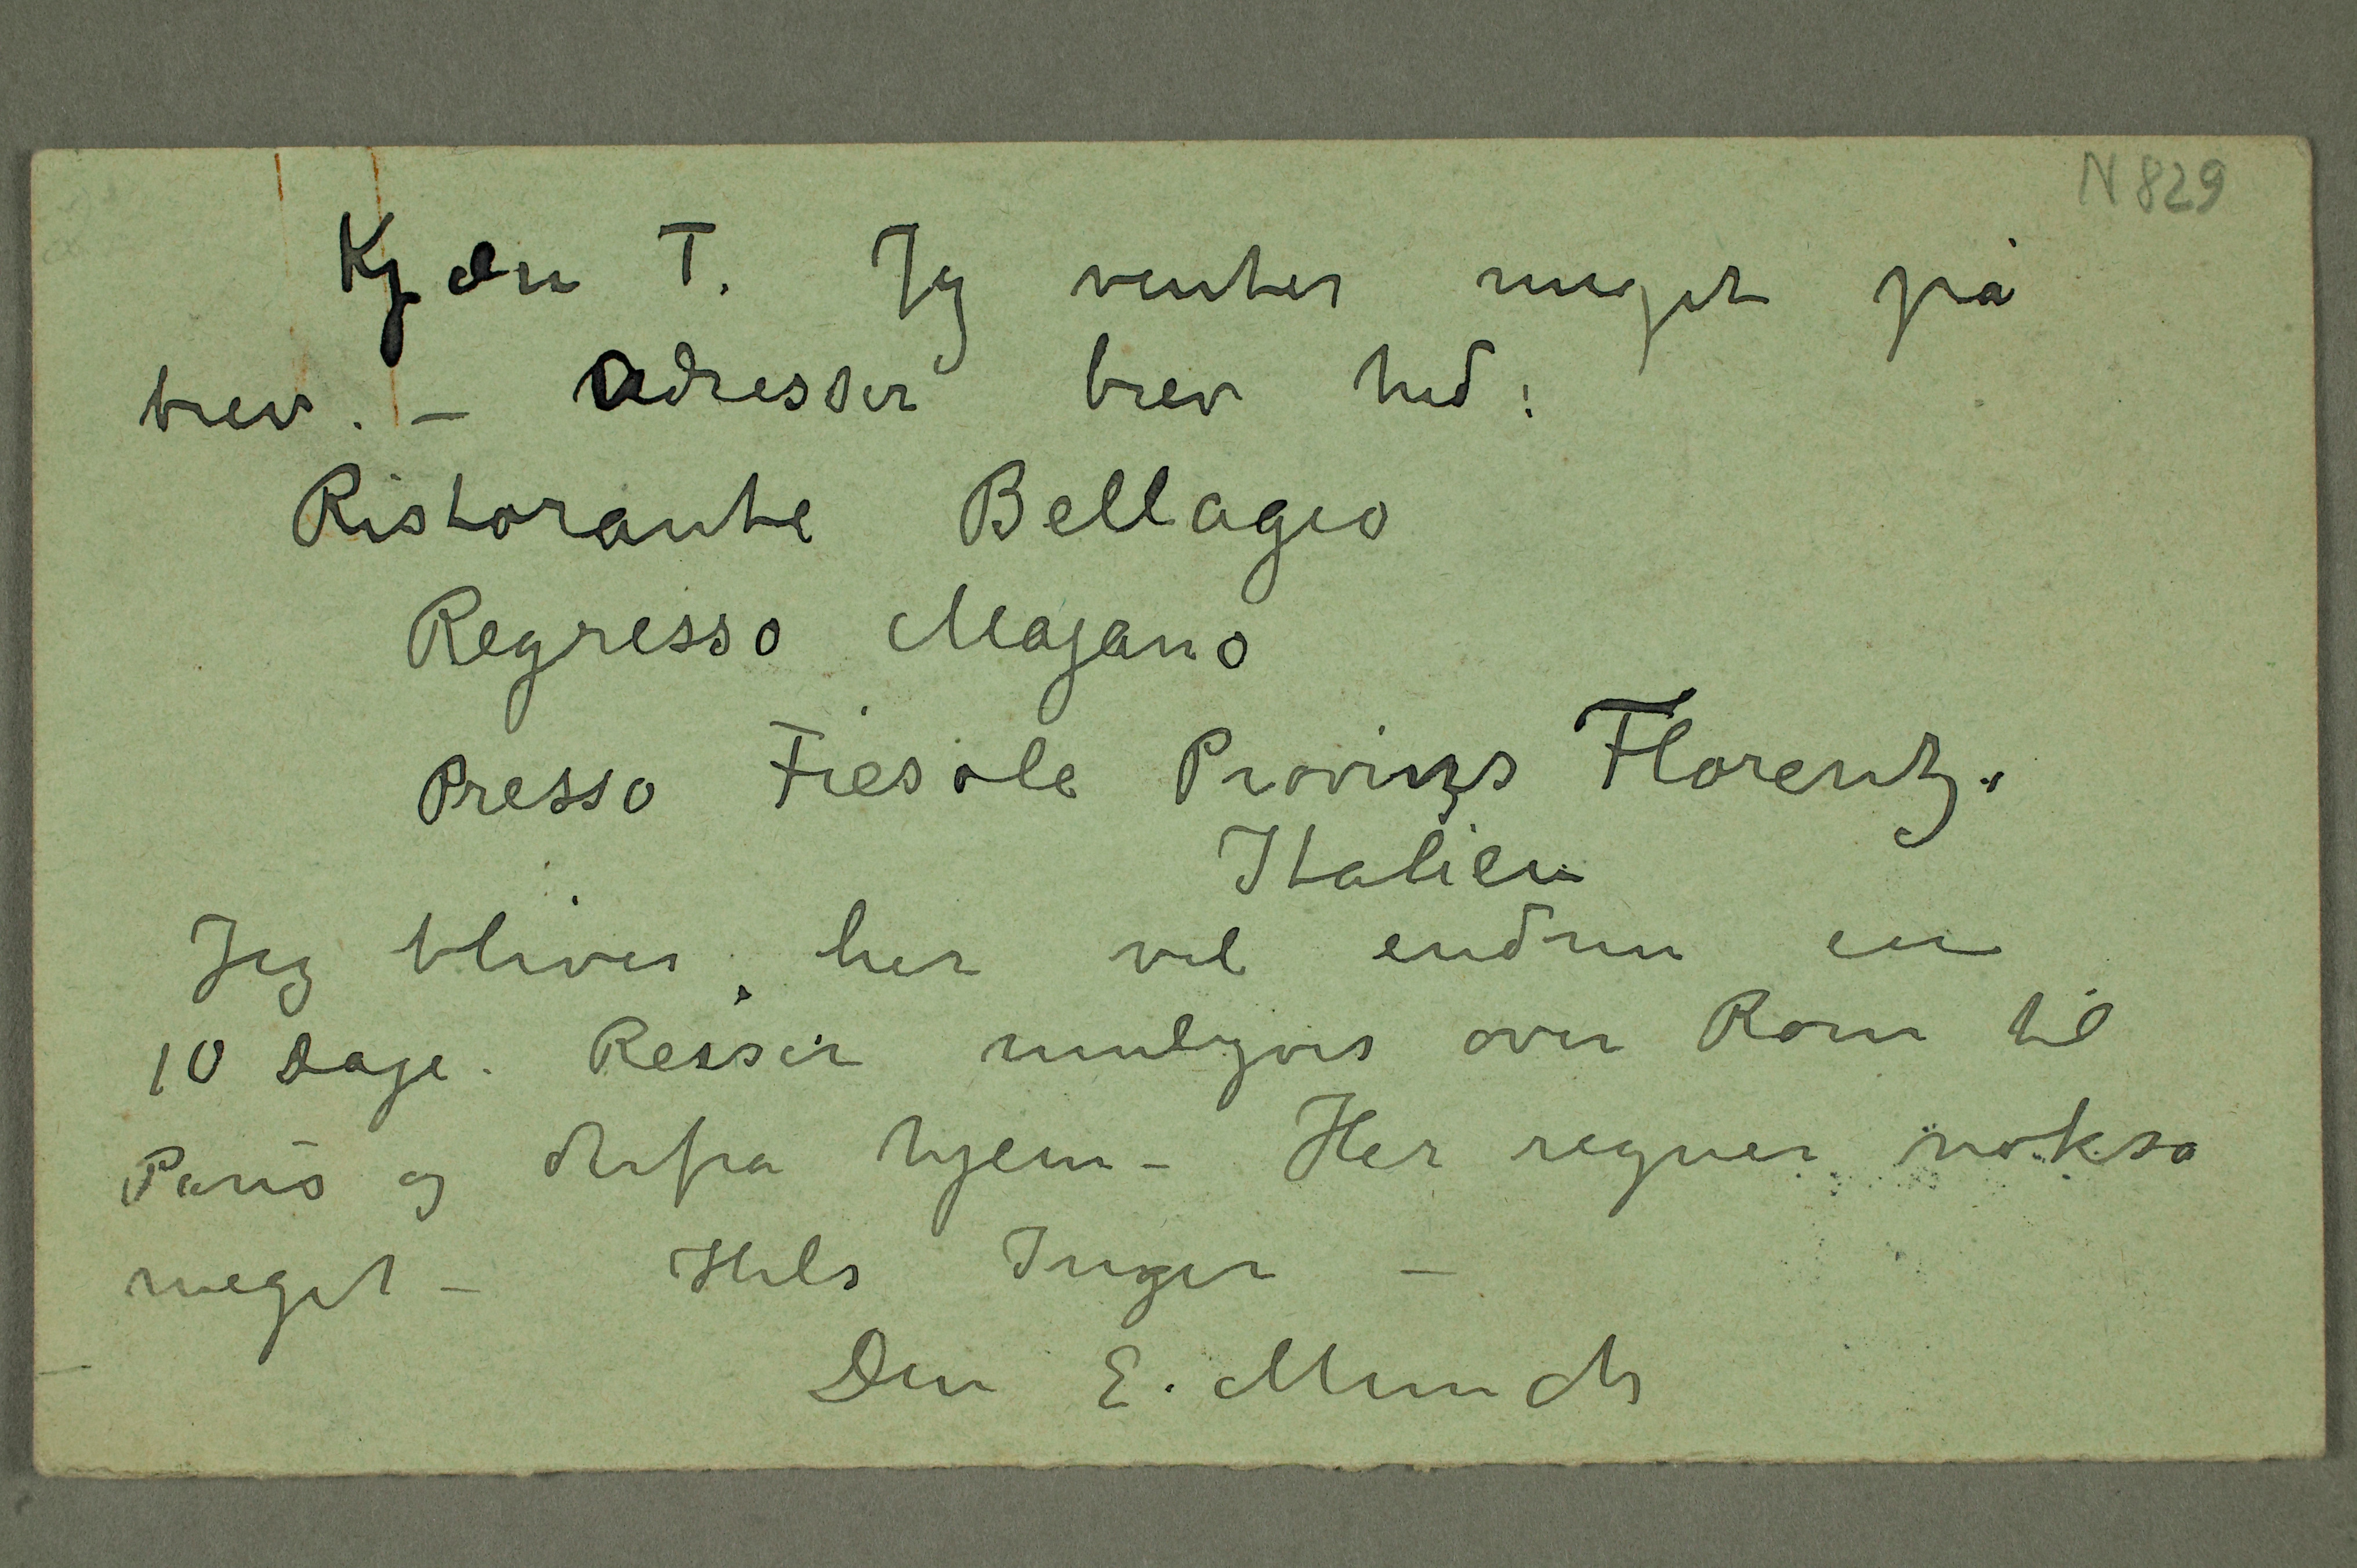 N 829
Kjære T. Jeg venter meget på
brev. – Adresser brev hid:
Ristorante Bellagio
Regresso Majano
Presso Fiesole Provinzs Florentz.
Italien
Jeg bliver her vel endnu en
10 Dage. Reiser muligvis over Rom til
Paris og derfra hjem – Her regner nokså
meget – Hils Inger –
Din E. Munch